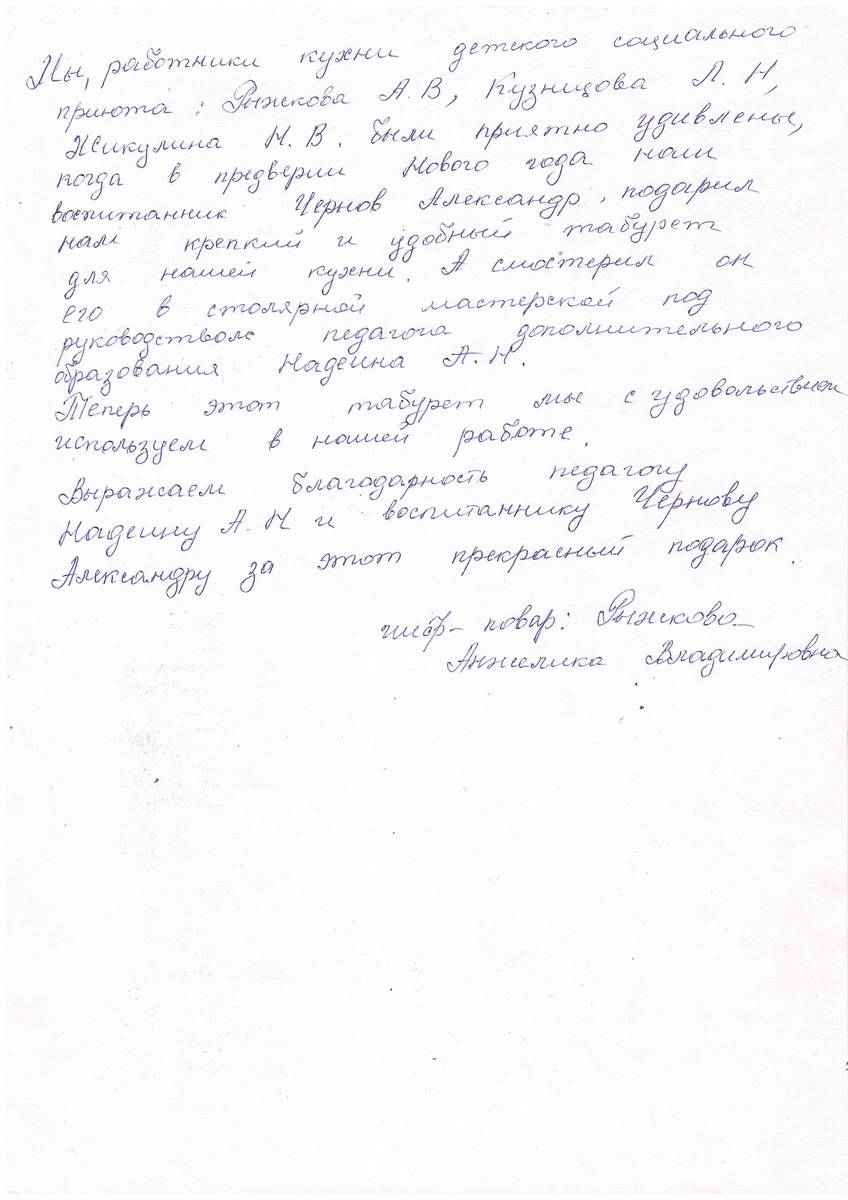 Мы, работники кухни детского социального
приюта: Рыжкова А.В, Кузницова Л.Н,
Жикулина Н.В. были приятно удивлены,
когда в предверии Нового года наш
воспитанник Чернов Александр, подарил
нам крепкий и удобный табурет
для нашей кухни. А смостерил он
его в столярной мастерской под
руководством педагога дополнительного
образования Надеина А.Н.
Теперь этот табурет мы с удовольствием
используем в нашей работе.
Выражаем благодарность педагогу
Надеину А.Н и воспитаннику Чернову
Александру за этот прекрасный подарок.
шеф-повар: Рыжкова
Анжелика Владимировна